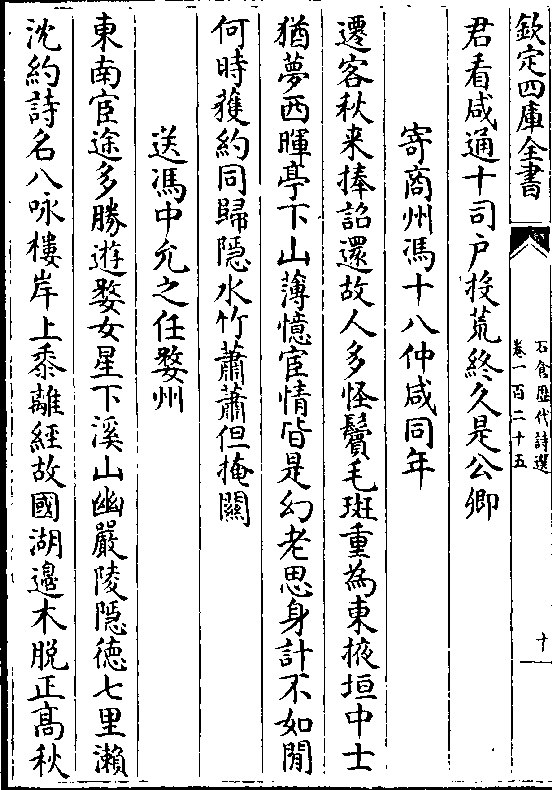 欽定四庫全書
石倉歷代詩選
卷一百二十五
十
君看咸通十司户投荒終久是公卿
寄商州馮十八仲咸同年
遷客秋来捧詔還故人多怪鬢毛斑重為東掖垣中士
猶夢西暉亭下山薄憶宦情皆是幻老思身計不如閒
何時獲約同歸隠水竹蕭蕭但掩關
送馮中允之任婺州
東南宦途多勝遊婺女星下溪山幽嚴陵隠徳七里瀬
沈約詩名八咏樓岸上黍離經故國湖邉木脱正髙秋